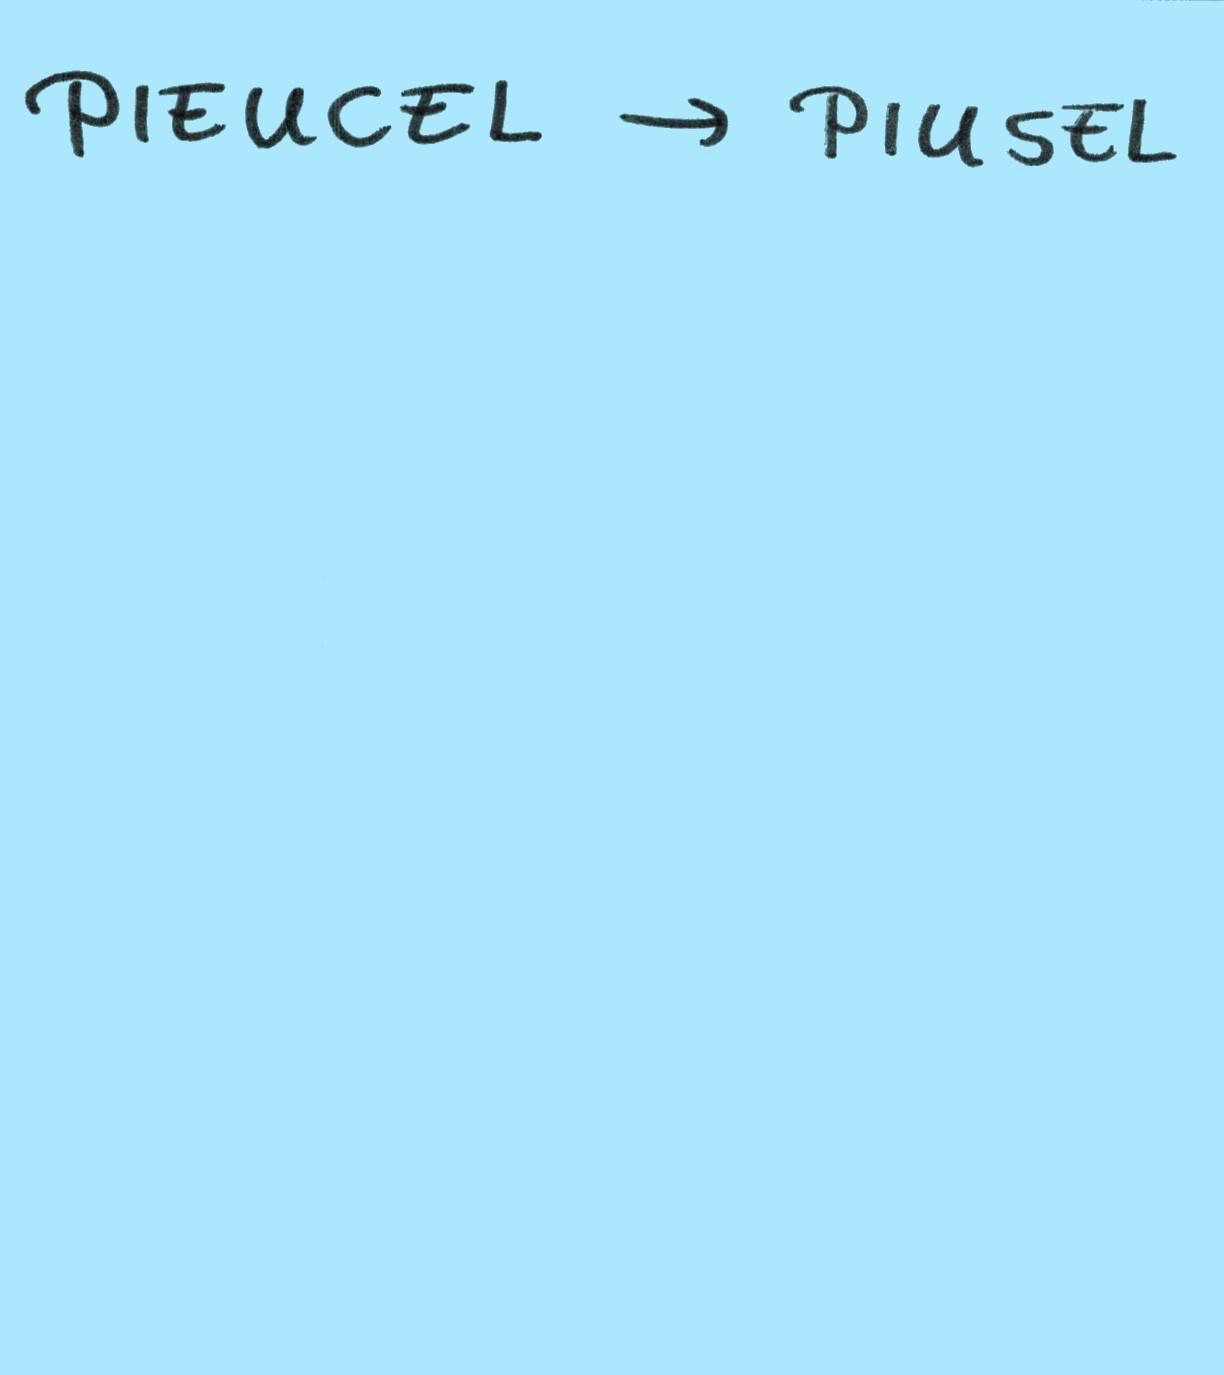 PIEUCEL → PIUSEL